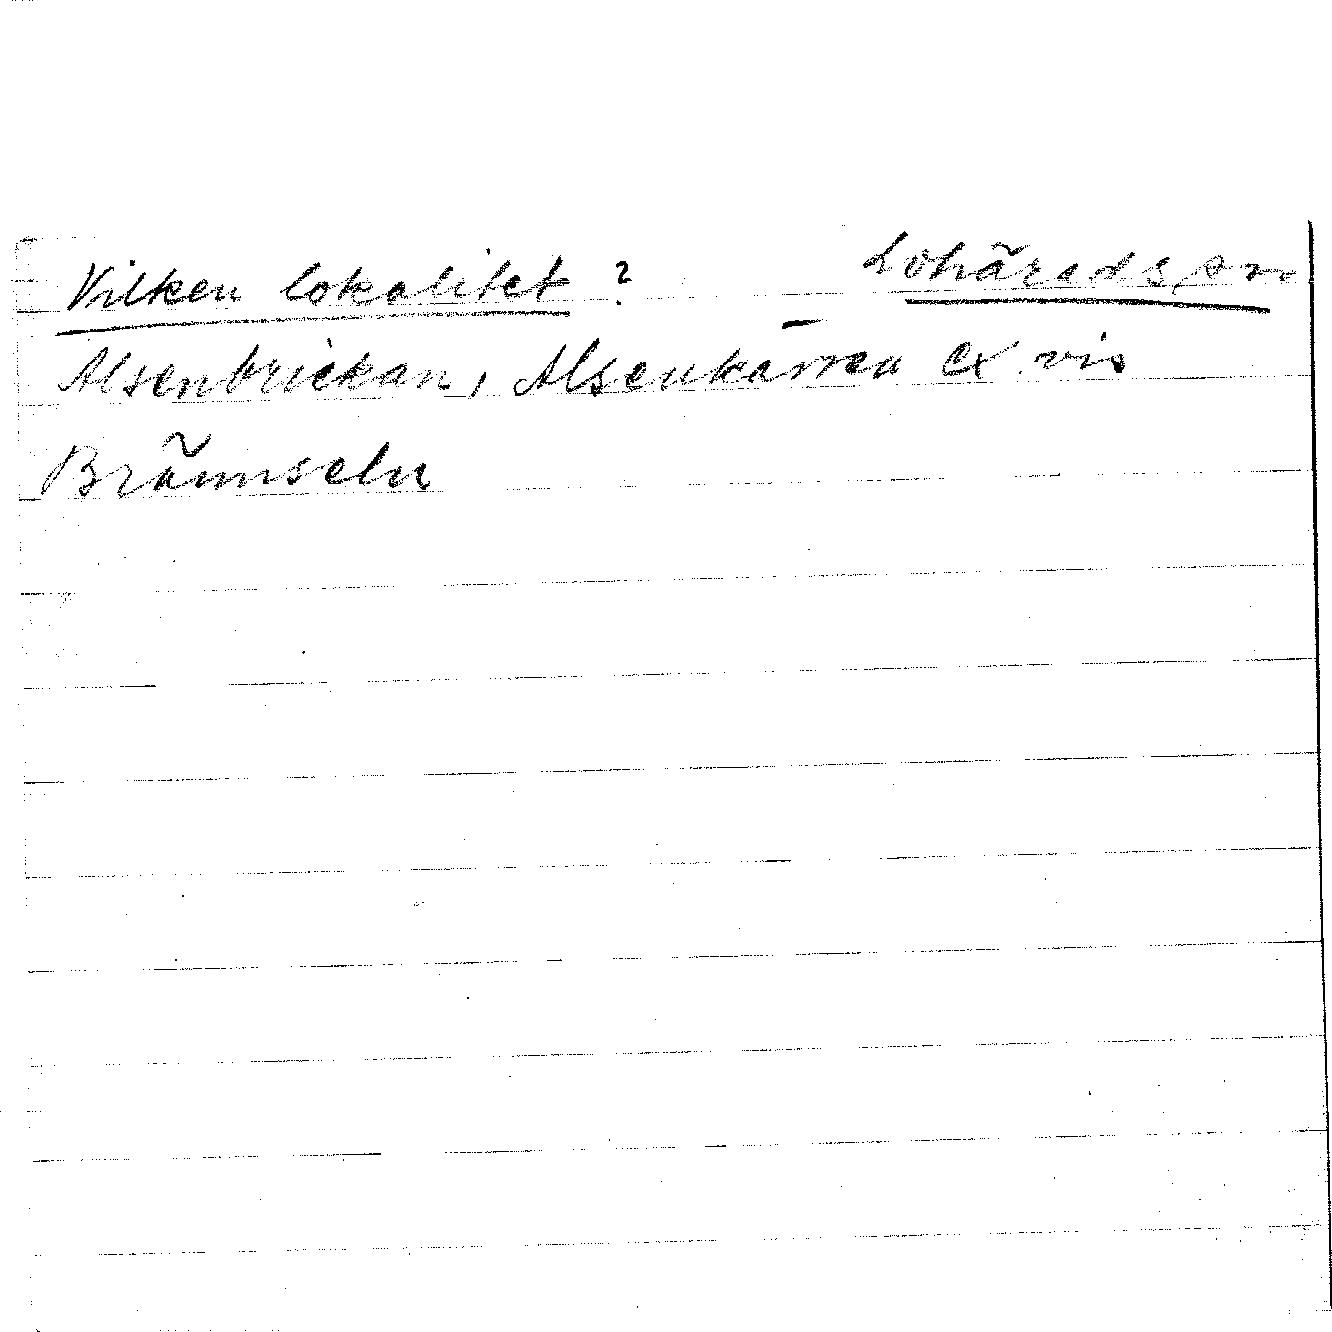 Vilken lokalitet? Lohärads sn
Alsenbrickan, Alsenkarren ex vis
Brännseln